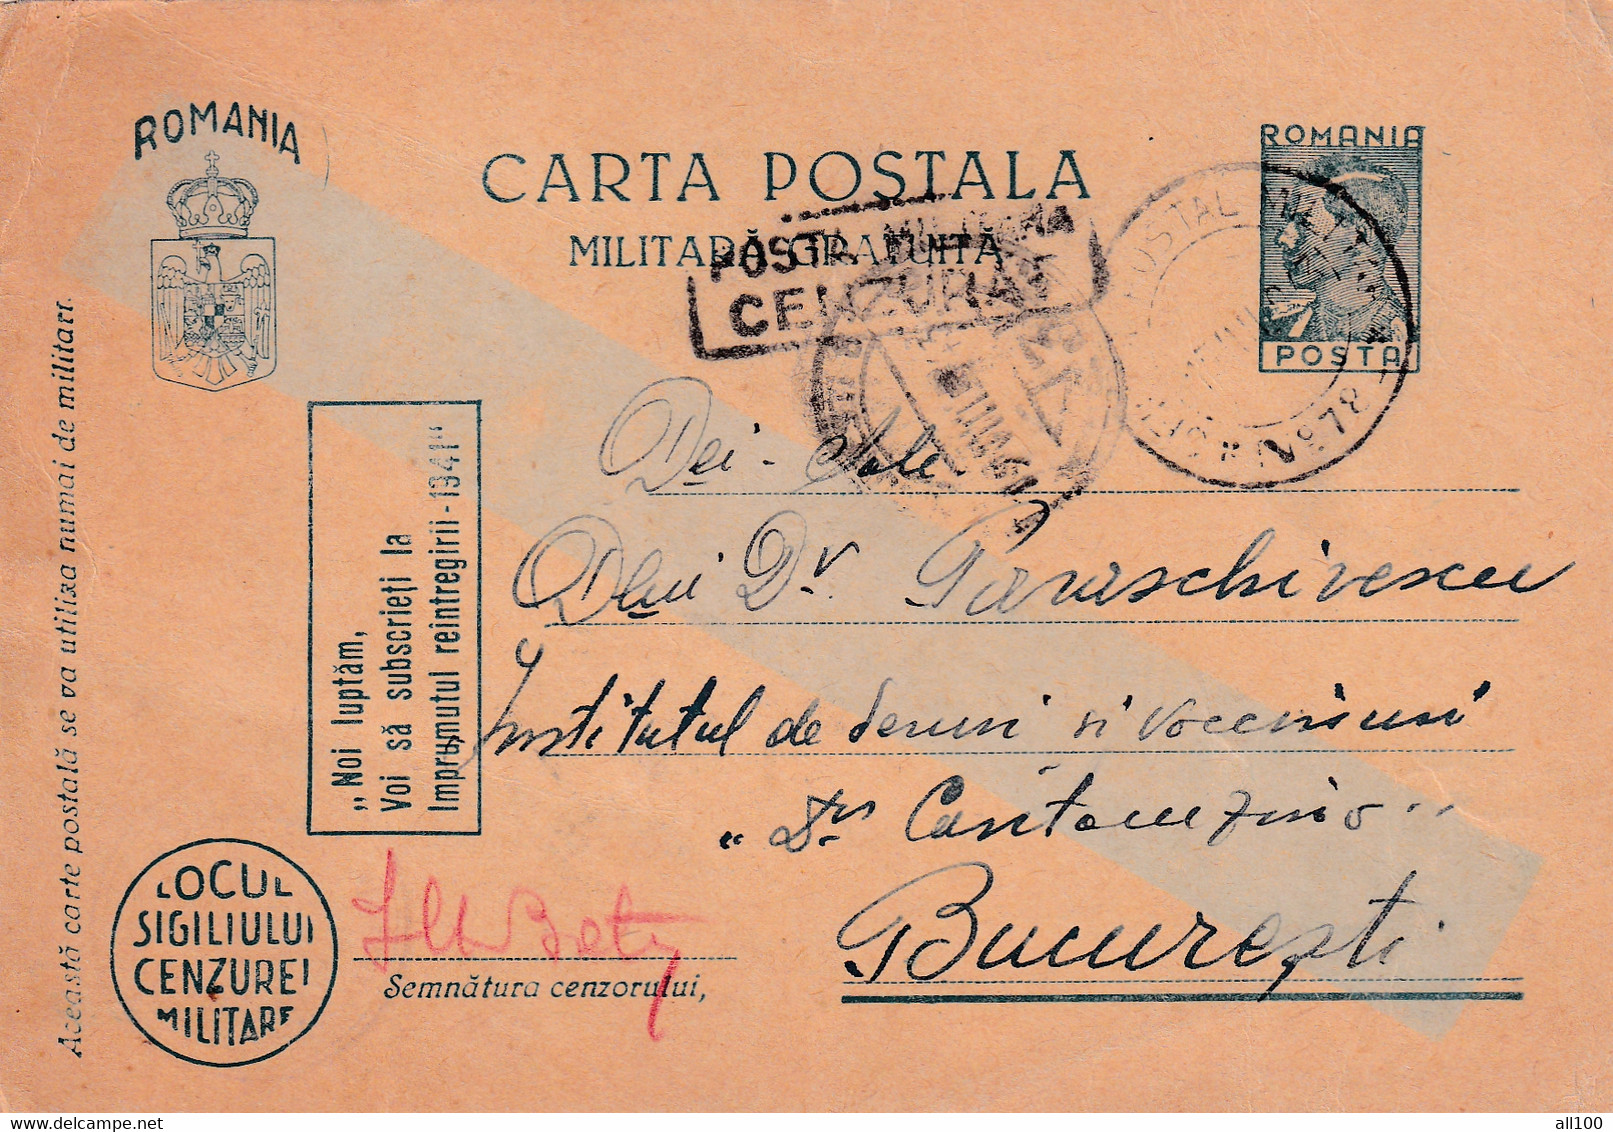 ROMANIA
CARTA POSTALA
MILITARĂ GRATUITĂ
POSTA MILITARA
CENZURAT
ROMANIA
POSTA
POSTAL
No 78
Această carte postală se va utiliza numai de militari.
„Noi luptăm,
Voi să subscrieți la
Imprumutul reintregirii-1941"
Dlui Dr. Paraschivescu
Institutul de seruri si vacciniuri
„Dr. Cantacuzino"
București
LOCUL
SIGILIULUI
CENZUREI
MILITARE
Semnătura cenzorului,
delcampe.net
all100